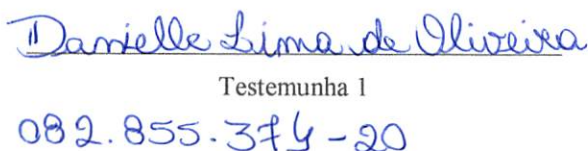 Danielle Lima de Oliveira
Testemunha 1
082.855.374-20